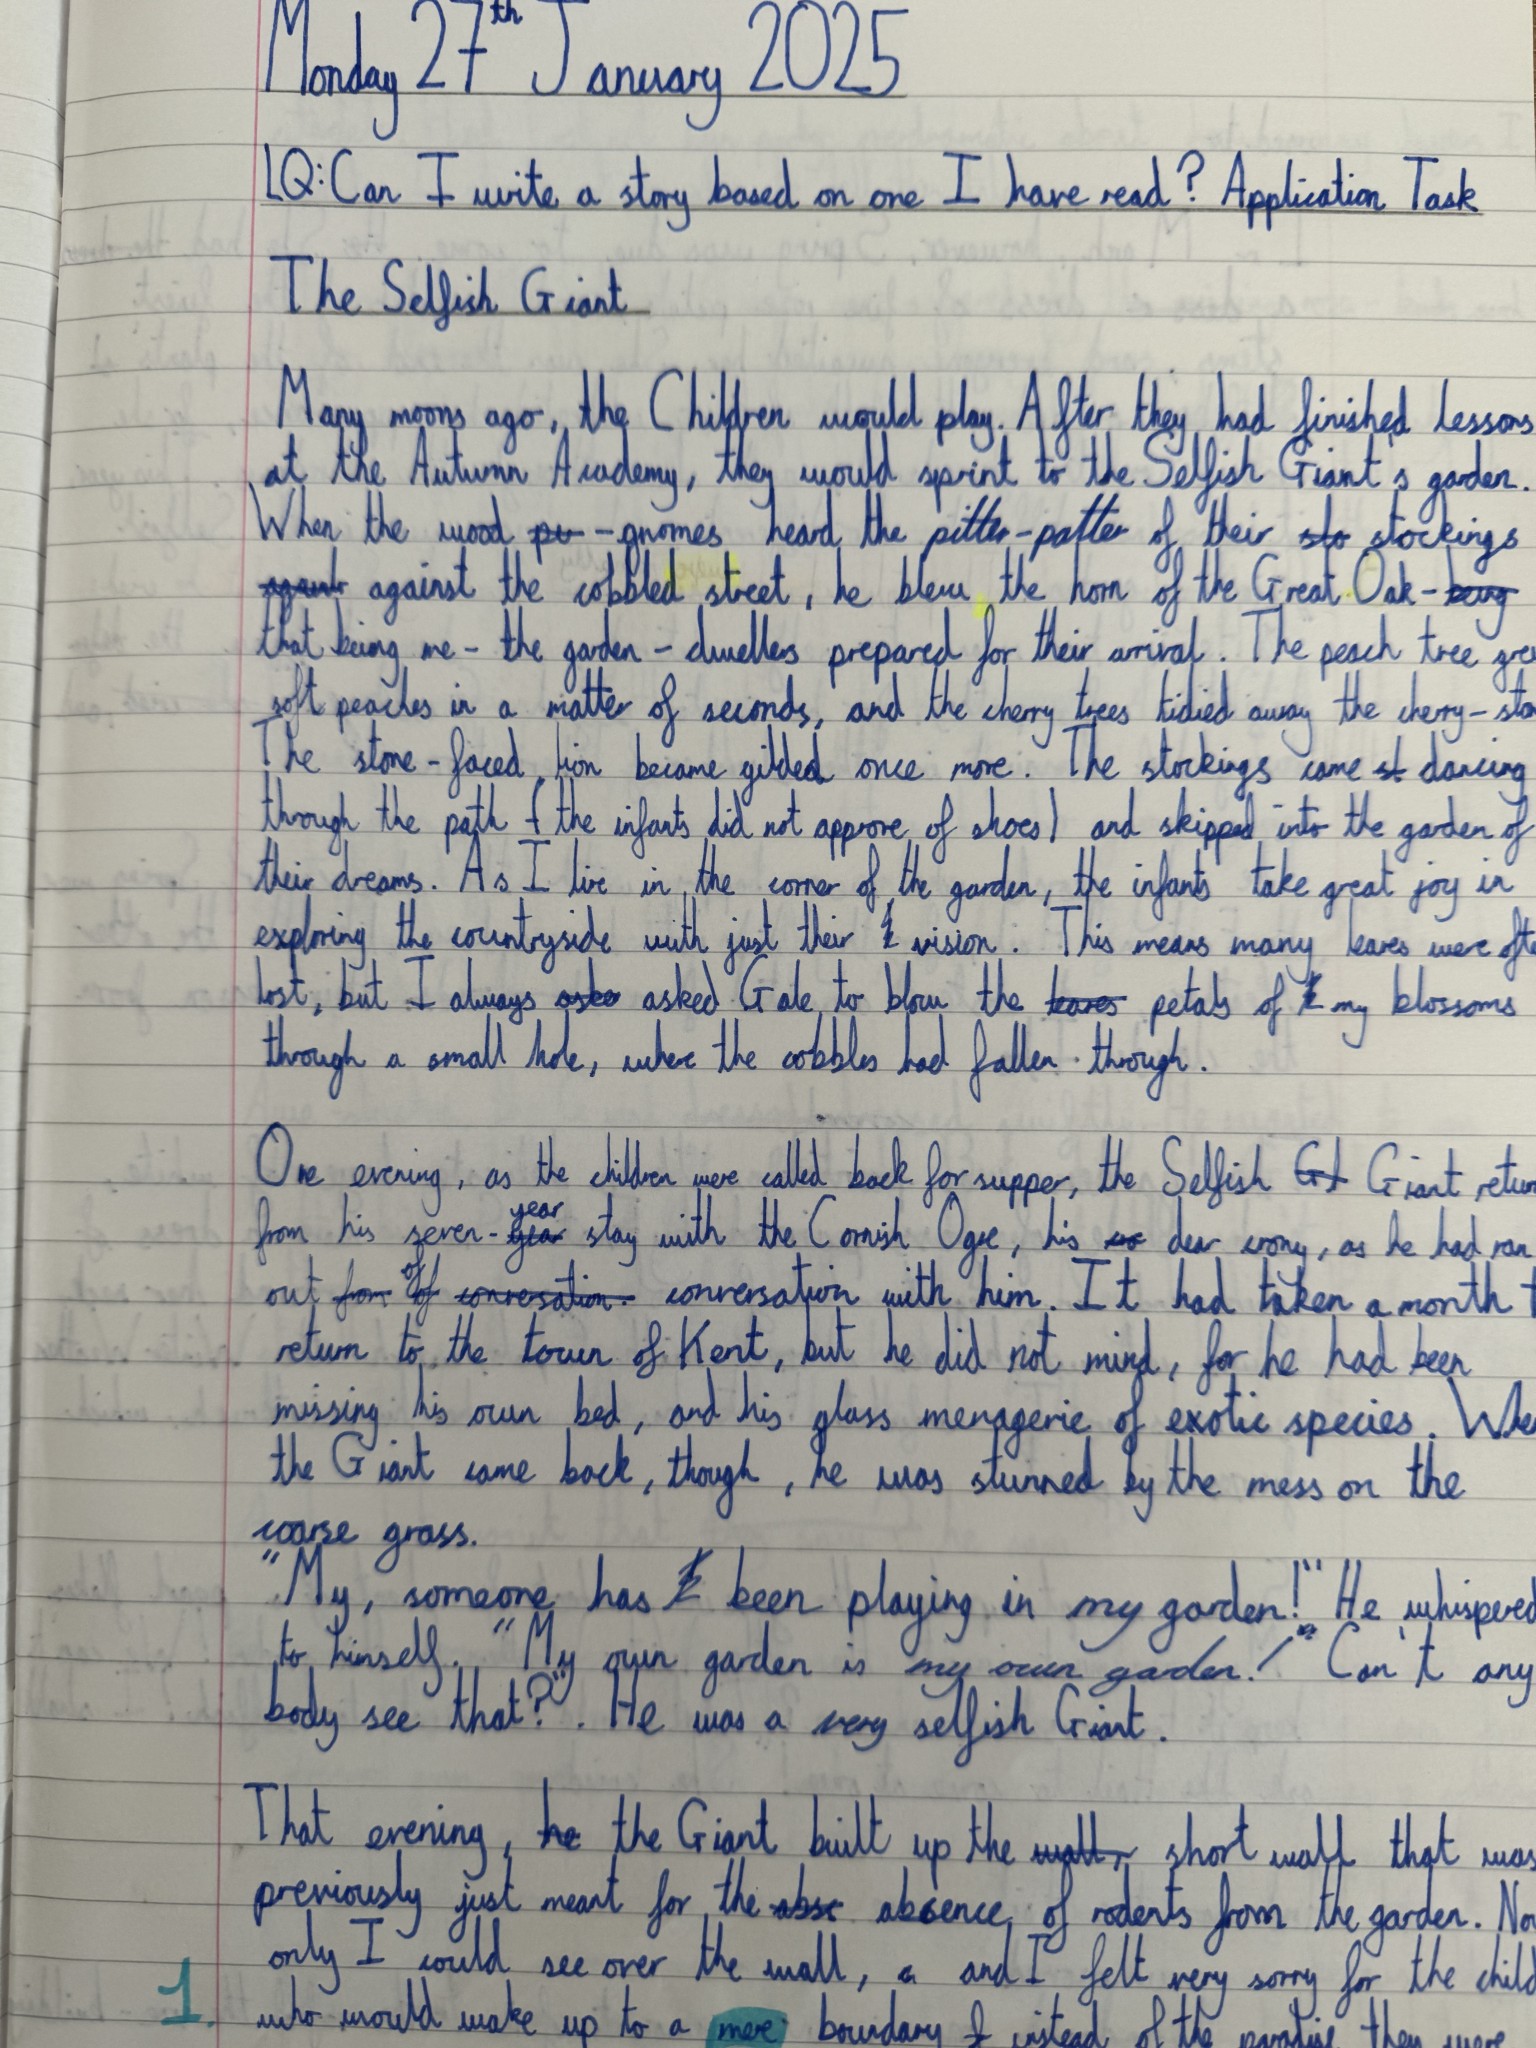 Monday 27th January 2025
LQ: Can I write a story based on one I have read? Application Task
The Selfish Giant
Many moons ago, the Children would play. After they had finished lessons
at the Autumn Academy, they would sprint to the Selfish Giant's garden.
When the wood -gnomes heard the pitter-patter of their stockings
against the cobbled street, he blew the horn of the Great Oak - being
that being me - the garden - dwellers prepared for their arrival. The peach tree gre
soft peaches in a matter of seconds, and the cherry trees tidied away the cherry-sto
The stone-faced lion became gilded once more. The stockings came st dancing
through the path (the infants did not approve of shoes) and skipped into the garden of
their dreams. As I live in the corner of the garden, the infants take great joy in
exploring the countryside with just their vision. This means many leaves were ofte
lost, but I always asked Gale to blow the leaves petals of my blossoms
through a small hole, where the cobbles had fallen through.
One evening, as the children were called back for supper, the Selfish Giant return
from his seven-year year stay with the Cornish Ogre, his dear crony, as he had ran
out from of of conversation conversation with him. It had taken a month t
return to the town of Kent, but he did not mind, for he had been
missing his own bed, and his glass menagerie of exotic species. Whe
the Giant came back, though, he was stunned by the mess on the
coarse grass.
"My, someone has been playing in my garden!" He whispered
to himself. "My own garden is my own garden!" Can't any
body see that?". He was a very selfish Giant.
That evening, he the Giant built up the wall, short wall that was
previously just meant for the absc absence of rodents from the garden. No
only I could see over the wall, a and I felt very sorry for the child
1. who would wake up to a mere boundary instead of the paradise they were